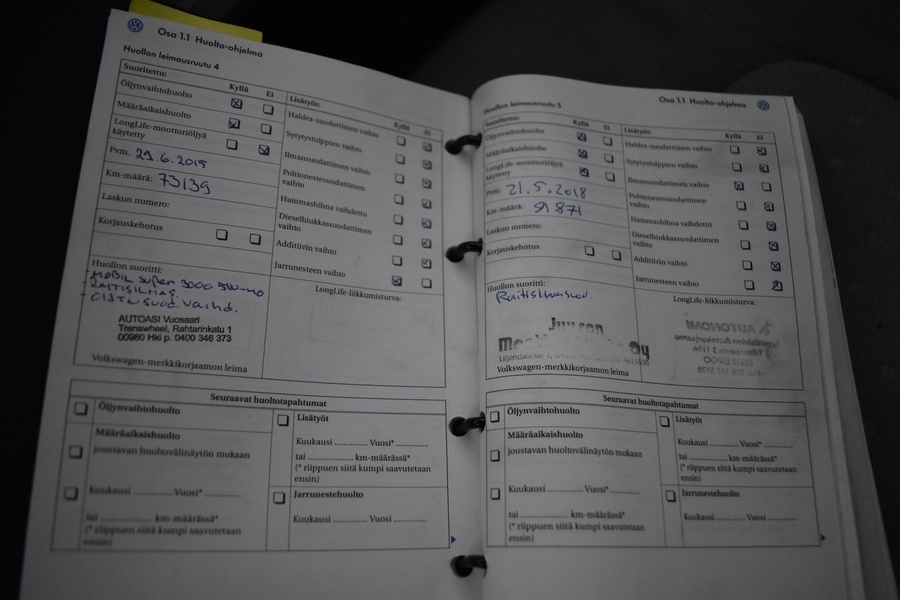 Osa 1.1 Huolto-ohjelma
Huollon leimausruutu 4
Suoritettu:
Kyllä Ei
Öljynvaihtohuolto
Määräaikaishuolto
LongLife-moottoriöljyä
käytetty
Pvm. 29.6.2015
Km-määrä: 73139
Laskun numero:
Korjauskehotus
Lisätyöt:
Kyllä Ei
Haldex-suodattimen vaihto
Sytytystulppien vaihto
Ilmansuodattimen vaihto
Polttonestesuodattimen
vaihto
Hammashihna vaihdettu
Dieselhiukkassuodattimen
vaihto
Additiivin vaihto
Jarrunesteen vaihto
Huollon suoritti:
- MOBIL super 3000 5W-40
- RAITISILMAS.
- ÖLJYNSUOD. vaihd.
AUTOASI Vuosaari
Transwheel, Rahtarinkatu 1
00980 Hki p. 0400 346 373
Volkswagen-merkkikorjaamon leima
LongLife-liikkumisturva:
Seuraavat huoltotapahtumat
Öljynvaihtohuolto
Määräaikaishuolto
joustavan huoltovälinäytön mukaan
Kuukausi ............ Vuosi* ............
tai ............ km-määrässä*
(* riippuen siitä kumpi saavutetaan
ensin)
Lisätyöt
Kuukausi ............ Vuosi* ............
tai ............ km-määrässä*
(* riippuen siitä kumpi saavutetaan
ensin)
Jarrunestehuolto
Kuukausi ............ Vuosi ............
Osa 1.1 Huolto-ohjelma
Huollon leimausruutu 5
Suoritettu:
Kyllä Ei
Öljynvaihtohuolto
Määräaikaishuolto
LongLife-moottoriöljyä
käytetty
Pvm. 21.5.2018
Km-määrä: 91871
Laskun numero:
Korjauskehotus
Lisätyöt:
Kyllä Ei
Haldex-suodattimen vaihto
Sytytystulppien vaihto
Ilmansuodattimen vaihto
Polttonestesuodattimen
vaihto
Hammashihna vaihdettu
Dieselhiukkassuodattimen
vaihto
Additiivin vaihto
Jarrunesteen vaihto
Huollon suoritti:
Raitisilmasuod.
Juuren
Oy
Volkswagen-merkkikorjaamon leima
LongLife-liikkumisturva:
AUTONOMI
02330 ESPOO
Seuraavat huoltotapahtumat
Öljynvaihtohuolto
Määräaikaishuolto
joustavan huoltovälinäytön mukaan
Kuukausi ............ Vuosi* ............
tai ............ km-määrässä*
(* riippuen siitä kumpi saavutetaan
ensin)
Lisätyöt
Kuukausi ............ Vuosi* ............
tai ............ km-määrässä*
(* riippuen siitä kumpi saavutetaan
ensin)
Jarrunestehuolto
Kuukausi ............ Vuosi ............